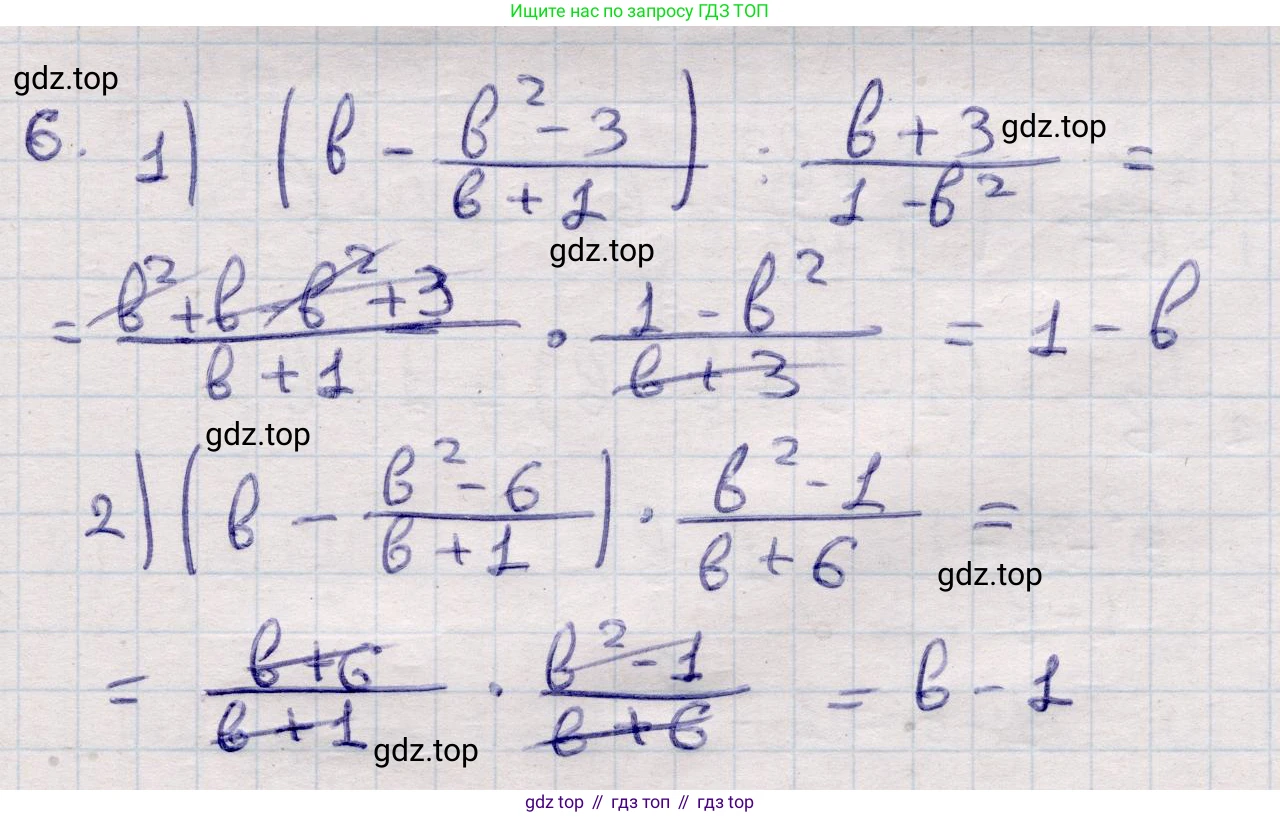 Ищите нас по запросу ГДЗ ТОП
gdz.top
6. 1) (в - (в² - 3)/(в + 1)) : (в + 3)/(1 - в²) =
gdz.top
gdz.top
= (в² + в - в² + 3)/(в + 1) · (1 - в²)/(в + 3) = 1 - в
gdz.top
2) (в - (в² - 6)/(в + 1)) · (в² - 1)/(в + 6) =
gdz.top
= (в + 6)/(в + 1) · (в² - 1)/(в + 6) = в - 1
gdz.top
gdz top // гдз топ // гдз top